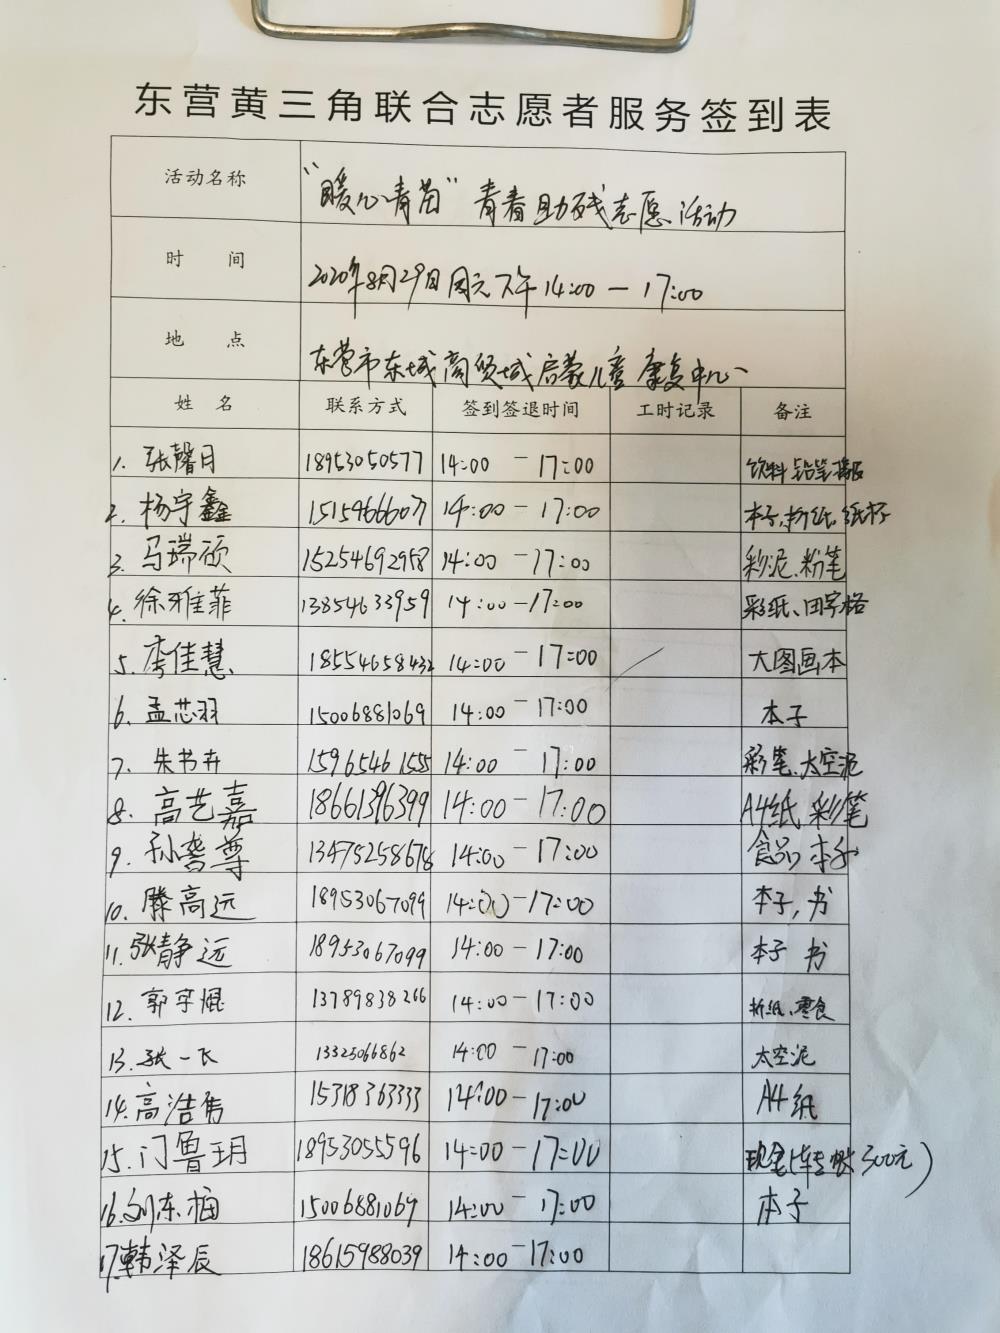 东营黄三角联合志愿者服务签到表
活动名称 "暖心青苗"青春助残志愿活动
时 间 2020年8月29日周六下午14:00—17:00
地 点 东营市东城商贸城启蒙儿童康复中心
姓 名 联系方式 签到签退时间 工时记录 备注
1. 张馨月 18953050577 14:00 — 17:00 饮料 铅笔 橡皮
2. 杨宇鑫 15154666077 14:00 — 17:00 本子、折纸、纸杯
3. 马瑞硕 15254692958 14:00 — 17:00 彩泥、粉笔
4. 徐雅菲 13854633959 14:00—17:00 彩纸、田字格
5. 李佳慧 18554658432 14:00—17:00 大图画本
6. 孟芯羽 15006881069 14:00—17:00 本子
7. 朱书卉 15965461555 14:00 — 17:00 彩笔、太空泥
8. 高艺嘉 18661396399 14:00—17:00 A4纸 彩笔
9. 孙誉尊 13475258678 14:00—17:00 食品 本子
10. 滕高远 18953067099 14:00—17:00 本子, 书
11. 张静远 18953067099 14:00—17:00 本子 书
12. 郭宇焜 13789838266 14:00—17:00 折纸、零食
13. 张一飞 13325066862 14:00 — 17:00 太空泥
14. 高浩隽 15318363333 14:00—17:00 A4纸
15. 门鲁玥 18953055596 14:00—17:00 现金(转账300元)
16. 刘东梅 15006881069 14:00 — 17:00 本子
17. 韩泽辰 18615988039 14:00—17:00